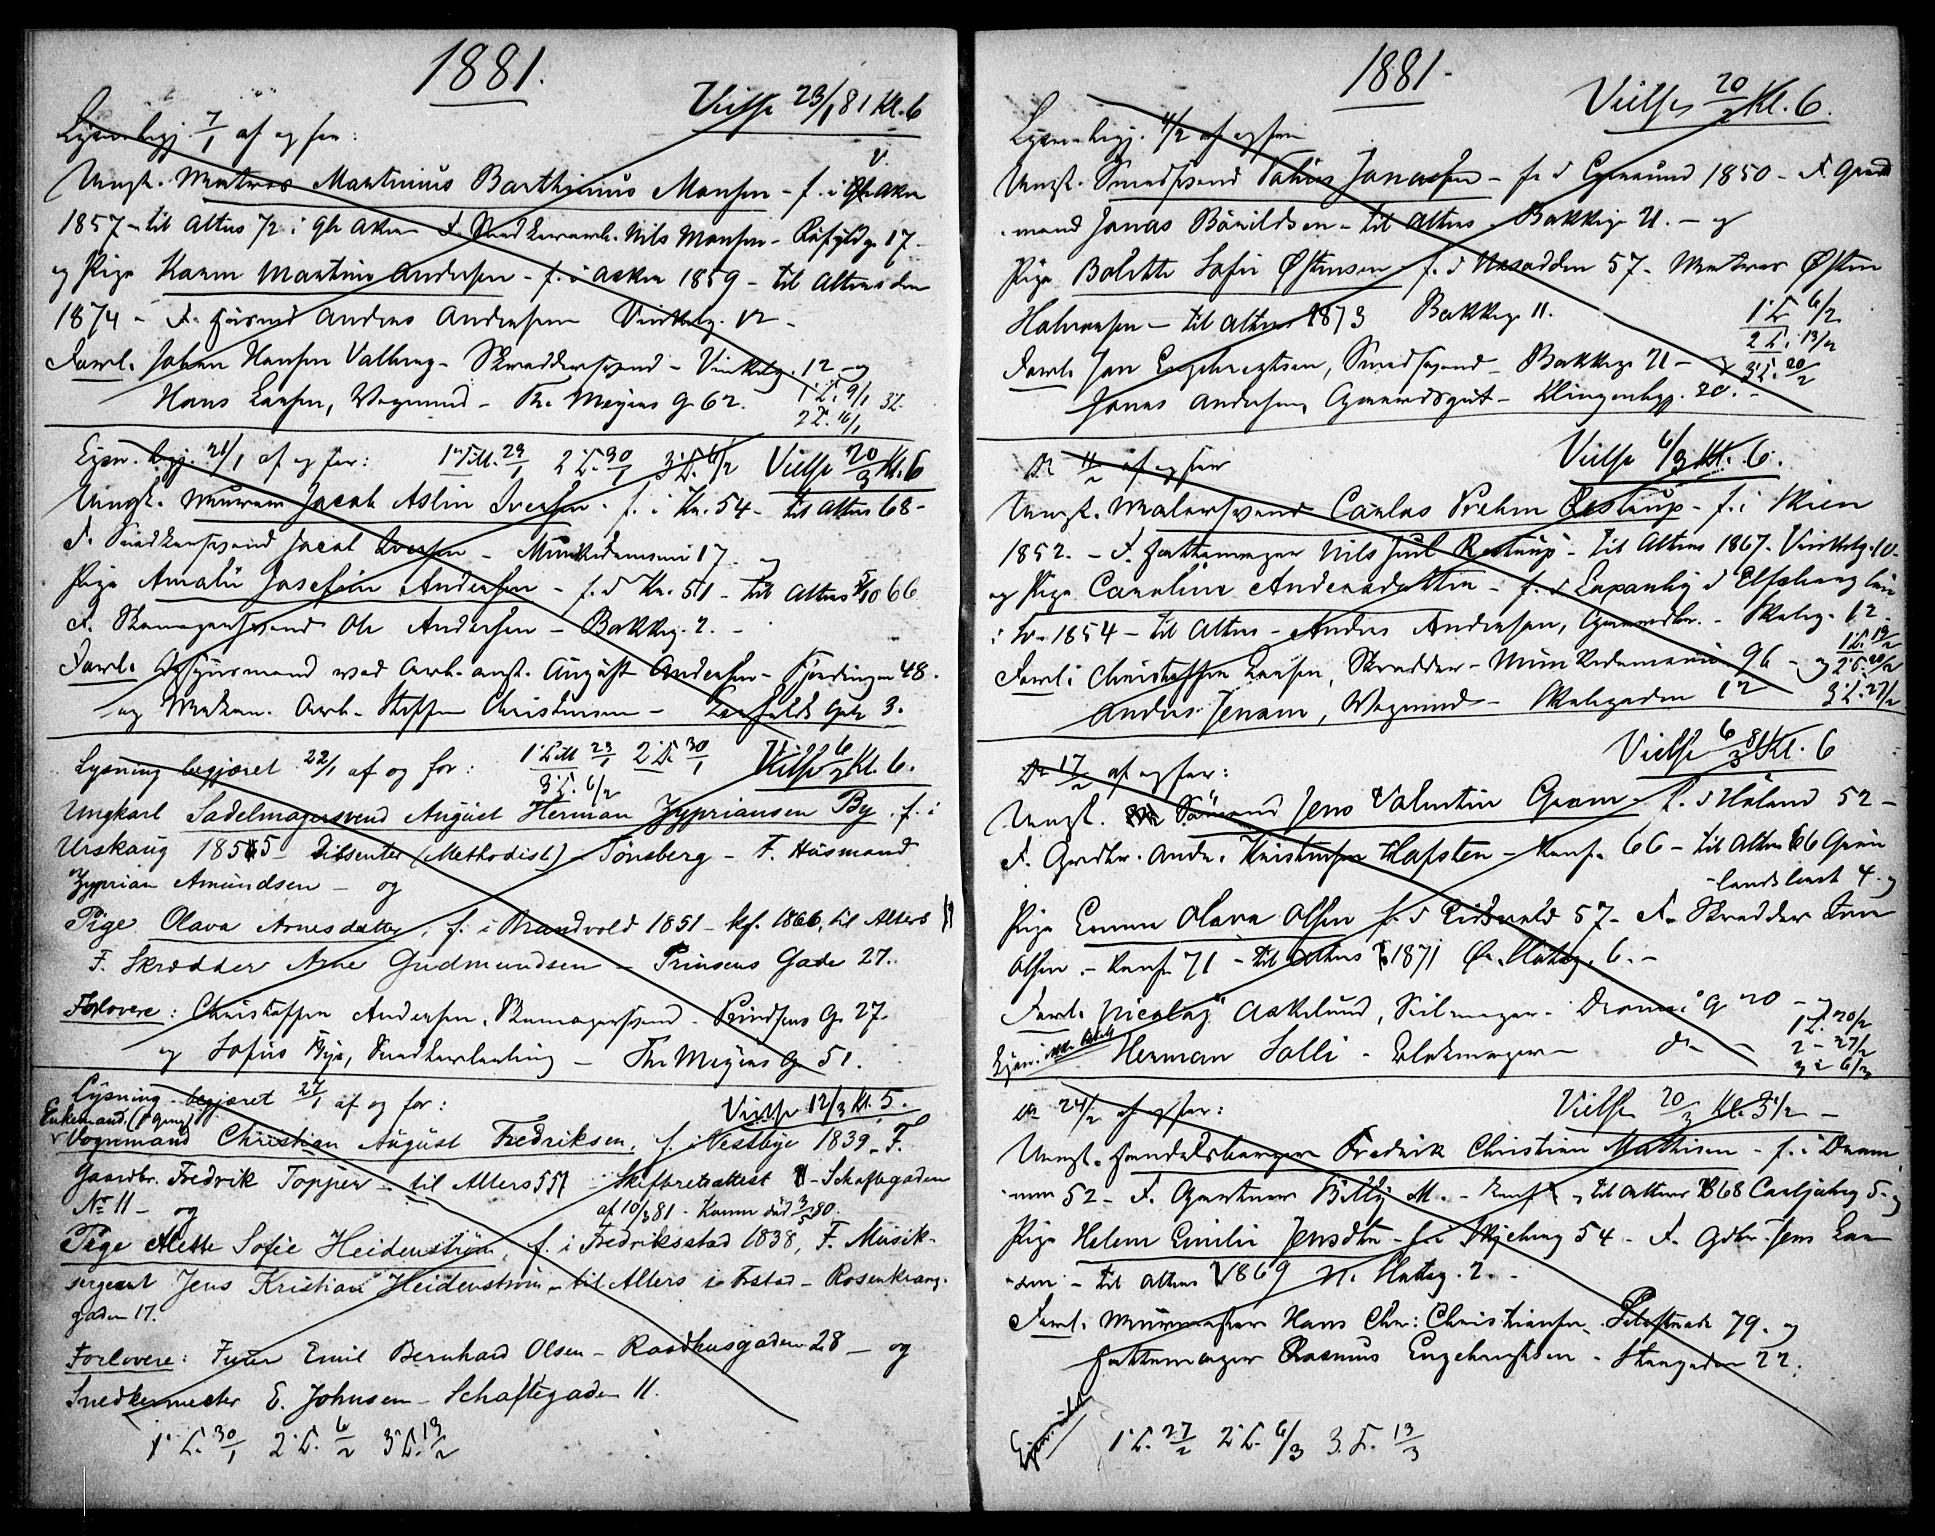 1881.
Vielse 23/1 81 Kl. 6
Lysn. begj. 7/1 af og for:
Ungk. Matros Martinius Barthinius Monsen - f. i V. Aker
1857 - til Alters 72 i V. Aker - F. Nils Monsen - 17 -
og Pige Karen Martine Andersen - f. i Asker 1859 - til Alters den
1874 - F. Husmd Andreas Andersen Vinkelg. 12 -
Forl. Johan Hansen Valberg - Skræddersvend - Vinkelg. 12 - og
Hans Larsen, Vognmd - Th. Meyers G. 62.
1. L. 9/1
2 L. 16/1
Lysn. begj. 21/1 af og for: 1 Till. 23/1 2 L. 30/1 3 L. 6/2 Vielse 20/3 Kl. 6
Ungk. Murer Jacob Aslin Iversen - f. i Kr. 54 - til Alters 68 -
F. Snedkersvend Jacob Iversen - Munkedamsvei 17 og
Pige Amalie Josefine Andersen - f. i Kr. 51 - til Alters 5/10 66
F. Skomagersvend Ole Andersen - Bakkeg. 2. -
Forl. ved Arb. anst. August Andersen - Fjerdingen 48.
og Mekan. Arb. Steffen Christensen - 3.
Lysning begjæret 22/1 af og for: 1 L. Till 23/1 2 L. 30/1 Vielse 6/2 Kl. 6.
3 L. 6/2
Ungkarl Sadelmagersvend August Herman Zypriansen By. f. i
Urskoug 1855 - Dissenter (Methodist) - Tønsberg - F. Husmand
Zyprian Amundsen - og
Pige Olava Arnesdatter, f. i Brandvold 1851 - kf. 1866, til Alters
F. Skrædder Arne Gudmundsen - Prinsens Gade 27.
Forlovere: Christoffer Andersen, Skomagersvend - Prindsens G. 27.
og Sofus Bye, Snedkerlærling - Th. Meyers G. 51.
Lysning begjæret 27/1 af og for: Vielse 12/3 Kl. 5.
Enkemand (1 gang)
Vognmand Christian August Fredriksen, f. i Vestbye 1839. F.
Gaardbr. Fredrik Topper - til Alters 55 Skifteretsattest - Schaftegaden
No 11 - og af 10/3 81 - Konen død 3/5 80.
Pige Mette Sofie Heidenstrøm, f. i Fredriksstad 1838, F. Musik-
sergeant Jens Kristian Heidenstrøm - til Alters i Frstad - Rosenkrantz-
gaden 17.
Forlovere: Emil Bernhard Olsen - Raadhusgaden 28 - og
Snedkermester E. Johnsen - Schaftegaden 11.
1 L. 30/1 2 L. 6/2 3 L. 13/2
1881.
Vielse 20/2 Kl. 6.
Lysn. begj. 4/2 af og for
Ungk. Smedsvend Jonassen - f. i 1850 - F. Grd
mand Jonas Bårildsen - til Alters - Bakkeg. 21. - og
Pige Bolette Sofie Østensen - f. i Næsodden 57 - Matros Østen
Halvorsen - til Alters 1873 Bakkeg. 11.
1. L. 6/2
2 L. 13/2
3 L. 20/2
Forl. Jon Engebregtsen, Smedsvend - Bakkeg. 21 - og
Jonas Andersen, Gaardsgut - Klingenbgg. 20. -
Do 11/2 af og for Vielse 6/3 Kl. 6.
Ungk. Malersvend Carlos Prehn Restrup - f. i Skien
1852. - F. Hattemager Nils Juul Restrup - til Alters 1867. Vinkelg. 10.
og Pige Caroline Andersdatter - f. i i Elfsborg län
i Sv. 1854 - til Alters - Anders Andersen, Gaardbr. - Skoleg. 12
Forl. Christoffer Larsen, Skrædder - Munkedamsvei 96 - og
Anders Jensen, Vognmd - Skolegaden 12
1 L. 13/2
2 L. 20/2
3 L. 27/2
Vielse 6/3 81 Kl. 6
Do 17/2 af og for:
Ungk. Sømand Jens Valentin Gram - f. i Høland 52 -
F. Grdbr. Andr. Kristensen Hafsten - Konf. 66 - til Alters 66 Grøn-
landsleret 4. og
Pige Emma Olava Olsen f. i Eidsvold 57 - F. Skrædder
Olsen. - Konf. 71 - til Alters 1871 Ø. Slotsg. 6. -
Forl. Nicolaj Askelund, Seilmager - Dronn. G 20 - og
Herman Solli - Blokmager - do -
1 L. 20/2
2 - 27/2
3 - 6/3
Do 24/2 af og for: Vielse 20/3 Kl. 5½ -
Ungk. Handelsborger Fredrik Christian Mathisen - f. i Dram
men 52 - F. Gartner M. - Konf. og til Alters 868 Carljohsg 5. og
Pige Helene Emilie Jensdtr - f. i Skjeberg 54 - F. Gdbr. Jens Lar
sen - til Alters 1869 N. Slottsg. 2. -
Forl. Murmester Hans Chr: Christiansen, Pilestræde 79. og
Hattemager Rasmus Engebrethsen - Storgaden 22.
1 L. 27/2 2 L. 6/3 3. L. 13/3